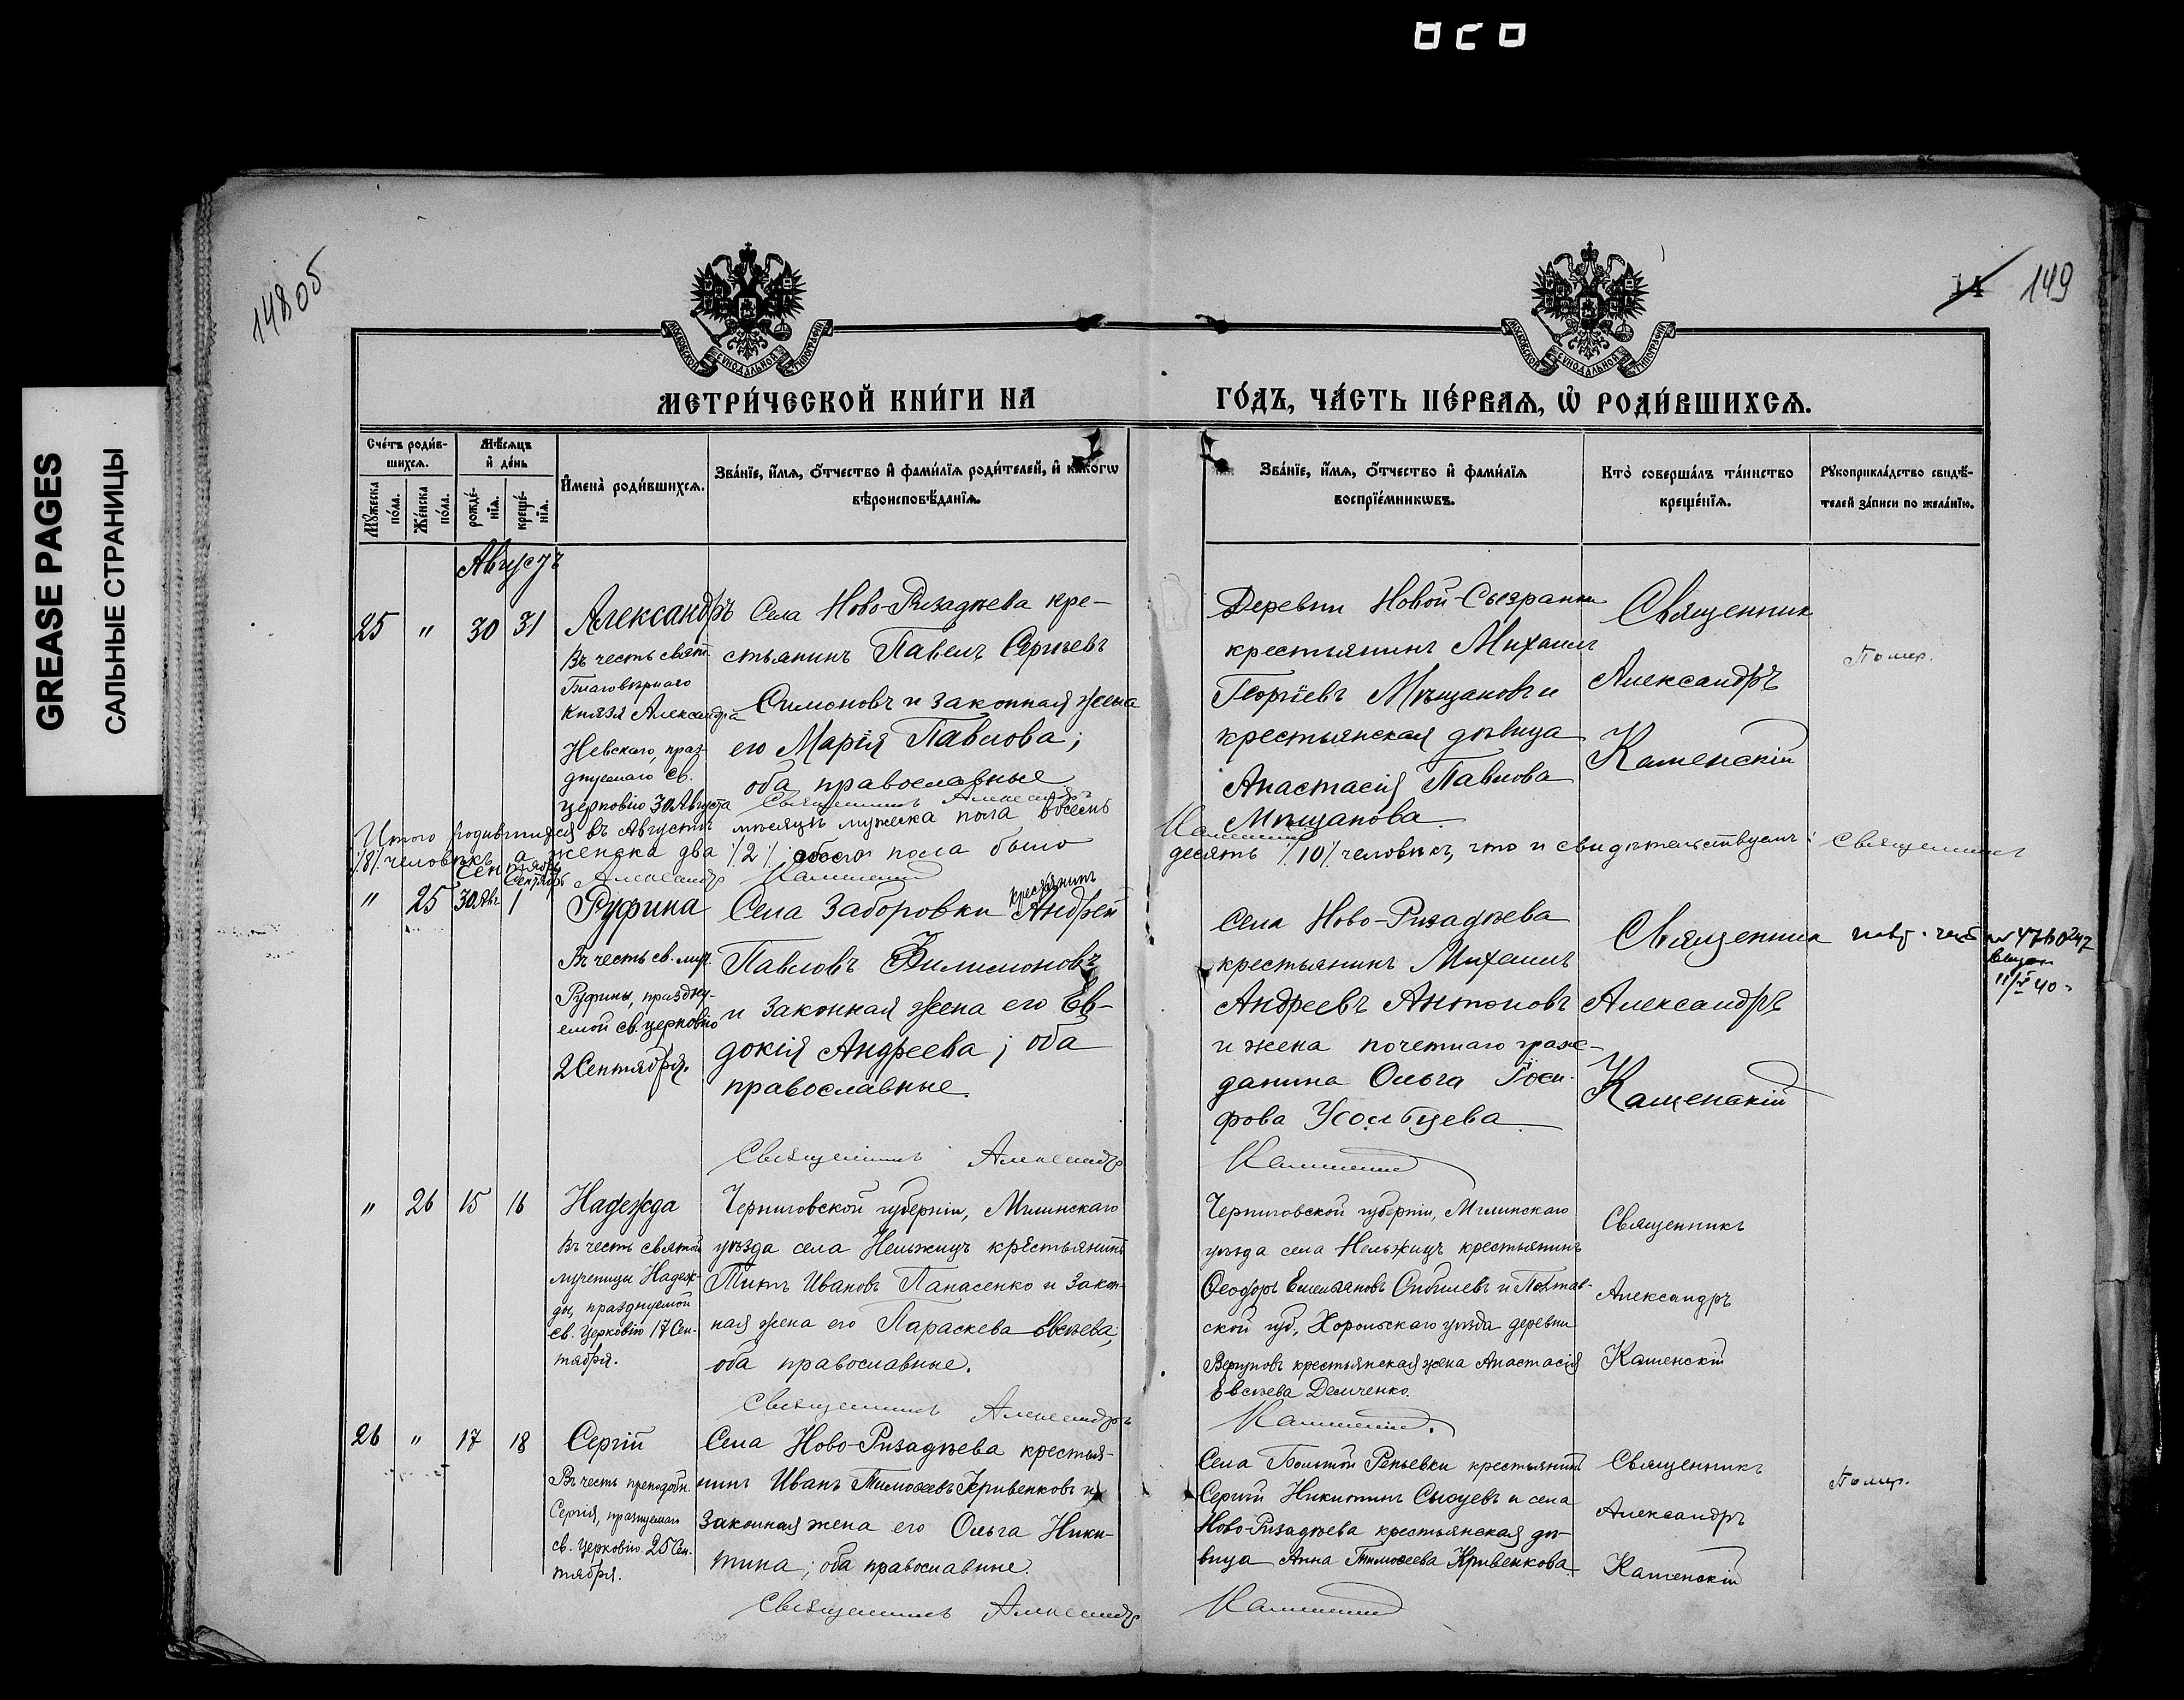 GREASE PAGES
САЛЬНЫЕ СТРАНИЦЫ
148 об
14 149
МОСКОВСКОЙ СѴНОДАЛЬНОЙ ТИПОГРАФІИ
МОСКОВСКОЙ СѴНОДАЛЬНОЙ ТИПОГРАФІИ
МЕТРИ́ЧЕСКОЙ КНИ́ГИ НА ГО́ДЪ, ЧА́СТЬ ПЕ́РВАѦ, Ѡ҆ РОДИ́ВШИХСѦ.
Сче́тъ роди́в-
шихсѧ.
Мѹ́жеска по́ла.
Же́нска по́ла.
Мѣ́сѧцъ
и҆ де́нь
рожде́-
нїѧ.
креще́-
нїѧ.
И҆мена̀ роди́вшихсѧ.
Зва́нїе, и҆́мѧ, ѻ҆́тчество и҆ фами́лїѧ роди́телей, и҆ како́гѡ
вѣроисповѣ́данїѧ.
Зва́нїе, и҆́мѧ, ѻ҆́тчество и҆ фами́лїѧ
воспрїе́мникѡвъ.
Кто̀ соверша́лъ та́инство
креще́нїѧ.
Рѹкоприкла́дство свидѣ́-
телей за́писи по жела́нїю.
Августъ
25 " 30 31
Александръ
Въ честь свят.
Благовѣрнаго
Князя Александра
Невскаго, праз-
днуемаго св.
церковію 30 Августа
Села Ново-Ризадѣева кре-
стьянинъ Павелъ Сергѣевъ
Симоновъ и законная жена
его Марія Павлова;
оба православные
Священникъ Александръ
Деревни Новой-Сызранки
крестьянинъ Михаилъ
Георгіевъ Мѣщановъ и
крестьянская дѣвица
Анастасія Павлова
Мѣщанова.
Каменскій
Священник
Александръ
Каменскій
Помер.
Итого родившихся въ Августѣ мѣсяцѣ мужеска пола восемь
/8/ человѣкъ, а женска два /2/ обоего пола было
десять /10/ человѣкъ, что и свидѣтельствуемъ: Священникъ
Александръ Каменскій
Сентябрь
Сентябрь
" 25 30 Авг 1
Руфина
Въ честь св. муч.
Руфины, праздну-
емой св. церковію
2 Сентября.
Села Заборовки крестьянинъ Андрей
Павловъ Филимоновъ
и законная жена его Ев-
докія Андреева; оба
православные.
Священникъ Александръ
Села Ново-Ризадѣева
крестьянинъ Михаилъ
Андреевъ Антоновъ
и жена почетнаго граж-
данина Ольга Іоси-
фова Усольцева
Каменскій
Священник
Александръ
Каменскій
" 26 15 16
Надежда
Въ честь святой
мученицы Надеж-
ды, празднуемой
св. Церковію 17 Сен-
тября.
Черниговской губерніи, Мглинскаго
уѣзда села Нельжичъ крестьянинъ
Титъ Ивановъ Панасенко и закон-
ная жена его Параскева Евсѣева;
оба православные.
Священникъ Александръ
Черниговской губерніи, Мглинскаго
уѣзда села Нельжичъ крестьянинъ
Ѳеодоръ Емельяновъ Сибилевъ и Полтав-
ской губ., Хорольскаго уѣзда деревни
крестьянская жена Анастасія
Евсѣева Демченко.
Каменскій.
Священникъ
Александръ
Каменскій
26 " 17 18
Сергій
Въ честь преподобн.
Сергія, празнуемаго
св. Церковію 25 Сен-
тября.
Села Ново-Ризадѣева крестья-
нинъ Иванъ Тимоѳеевъ Кривенковъ и
законная жена его Ольга Ники-
тина; оба православные.
Священникъ Александръ
Села Большой Репьевки крестьянинъ
Сергій Никитинъ Сысуевъ и села
Ново-Ризадѣева крестьянская дѣ-
вица Анна Тимоѳеева Кривенкова
Каменскій
Священникъ
Александръ
Каменскій
Помер.